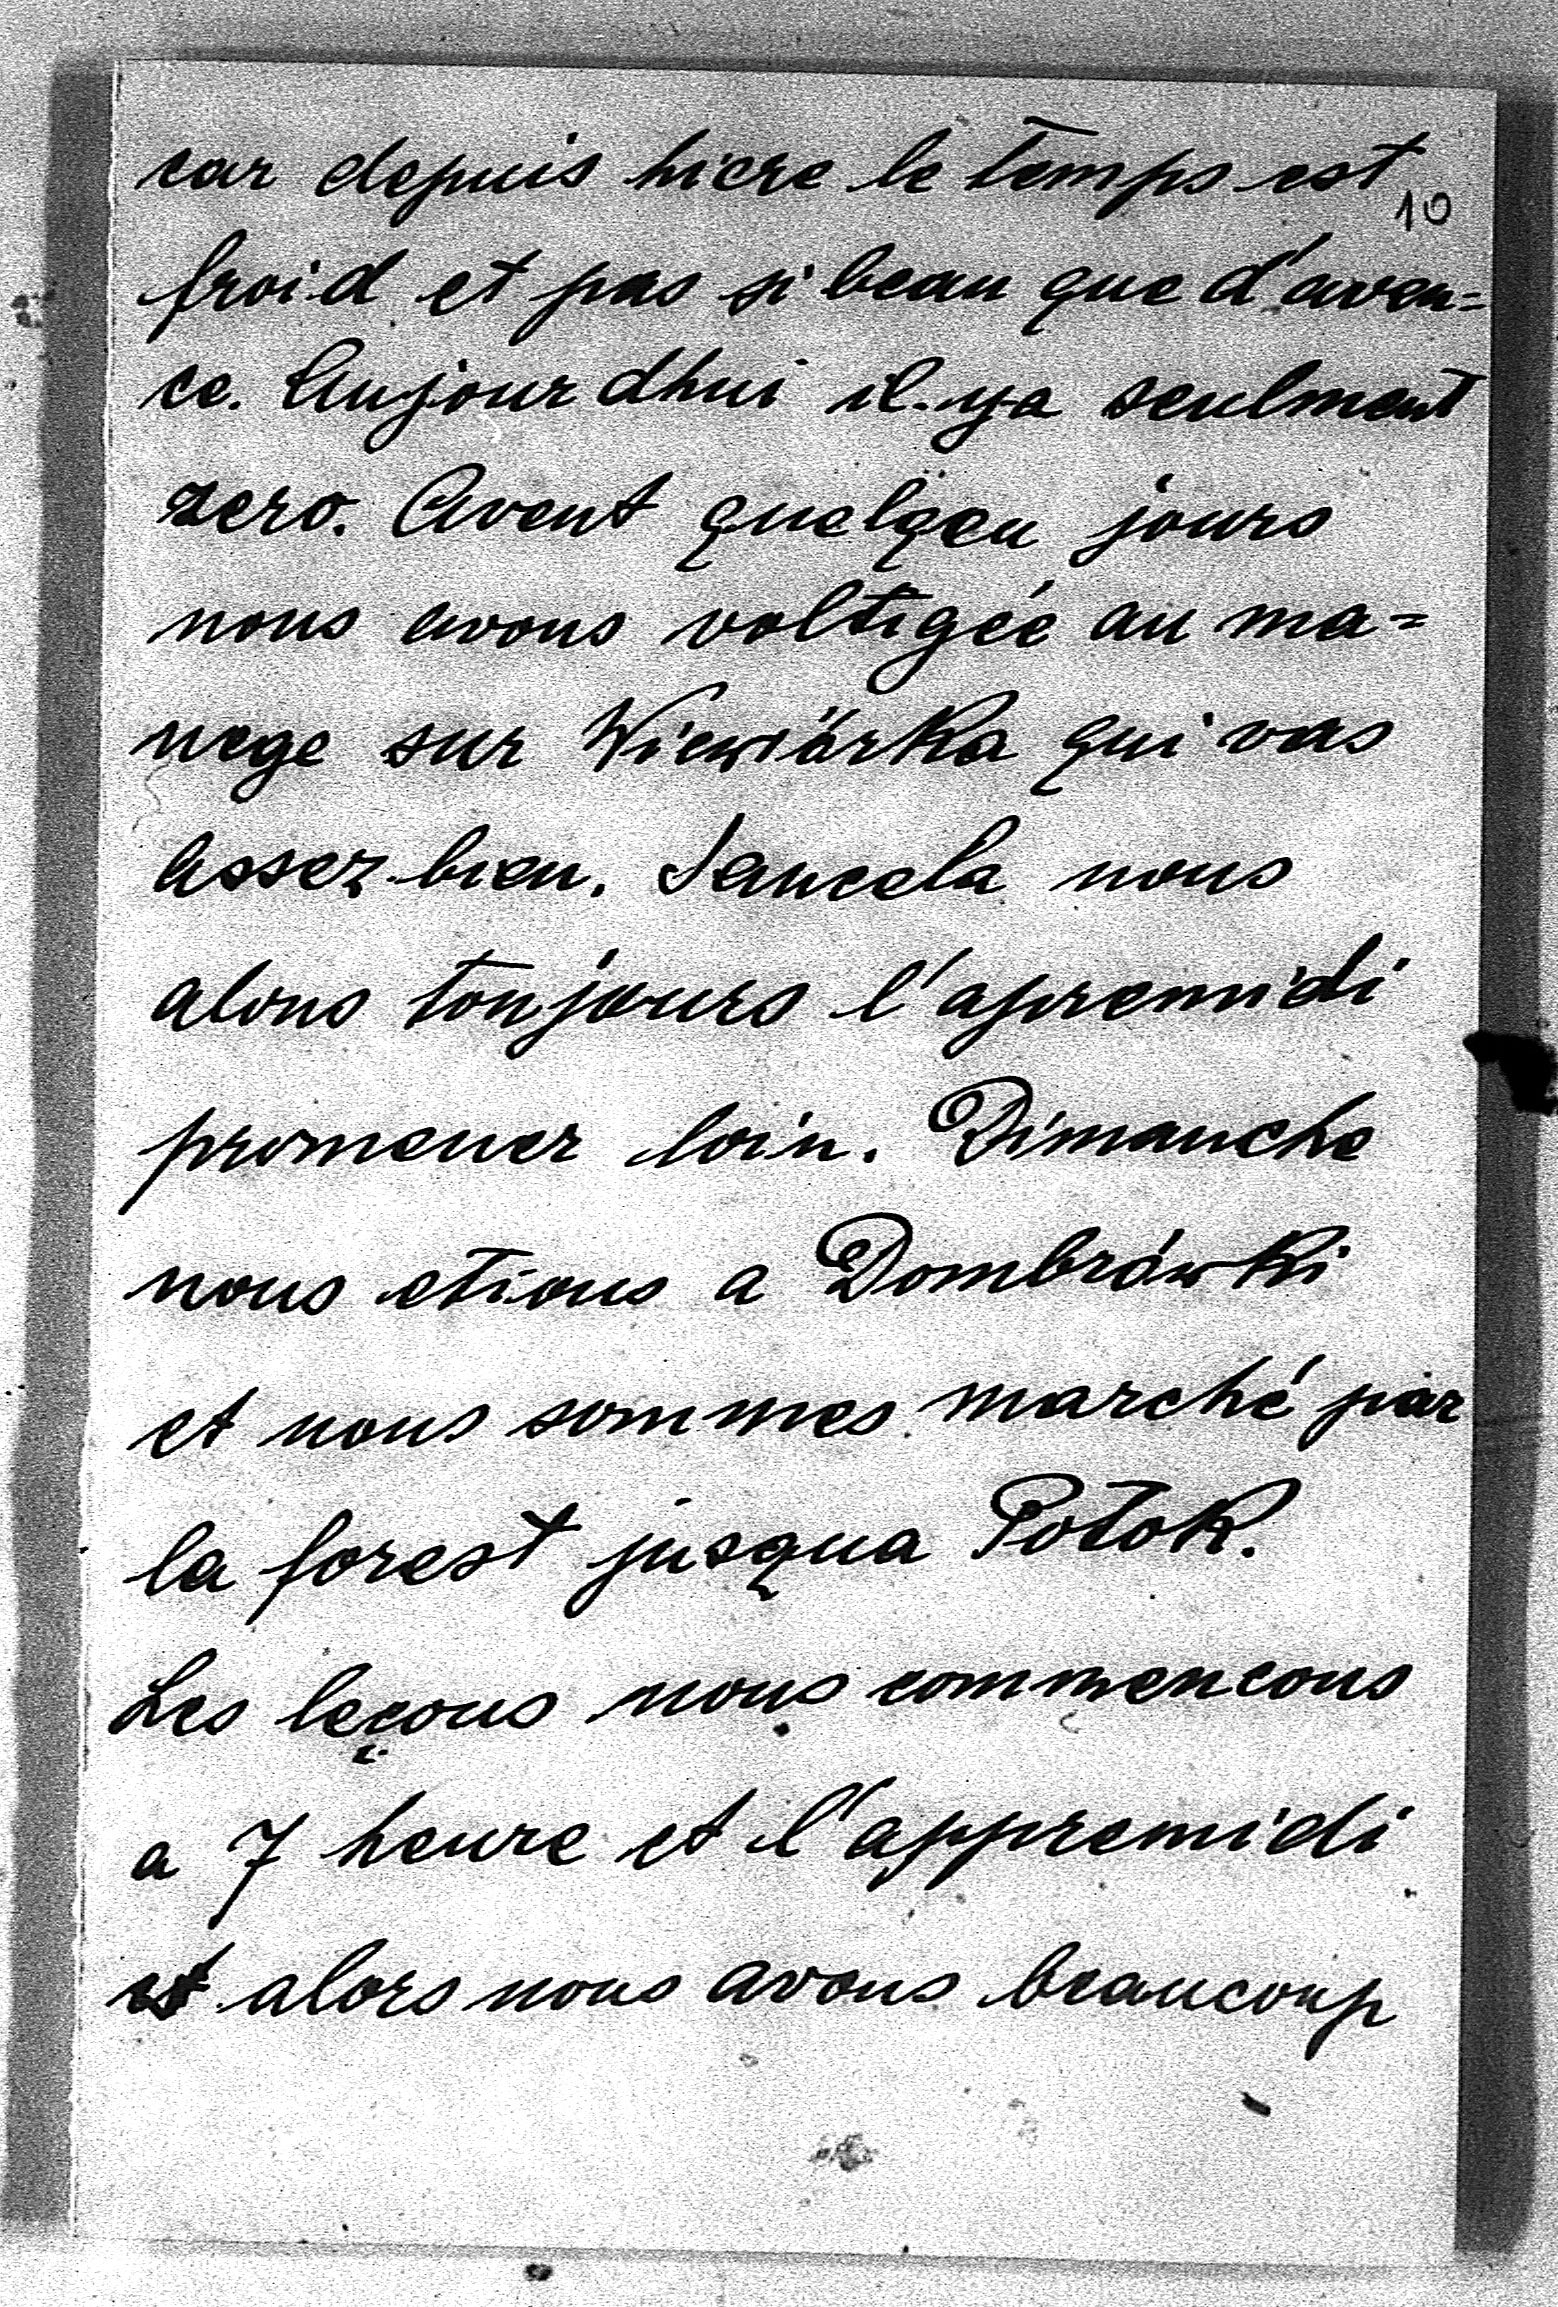 car depuis hiere le temps est
10
froid et pas si beau que d'aven=
ce. Aujourdhui il.ya seulment
zero. Avent quelqeu jours
nous avons voltigée au ma=
nege sur Wiewiórka qui vas
assez bien. Sancela nous
alons toujours l'apremidi
promener loin. Dimanche
nous etions a Dombrówki
et nous sommes marché par
la forest jusqua Potok.
Les leçons nous commencons
a 7 heure et l'appremidi
et alors nous avons beaucoup